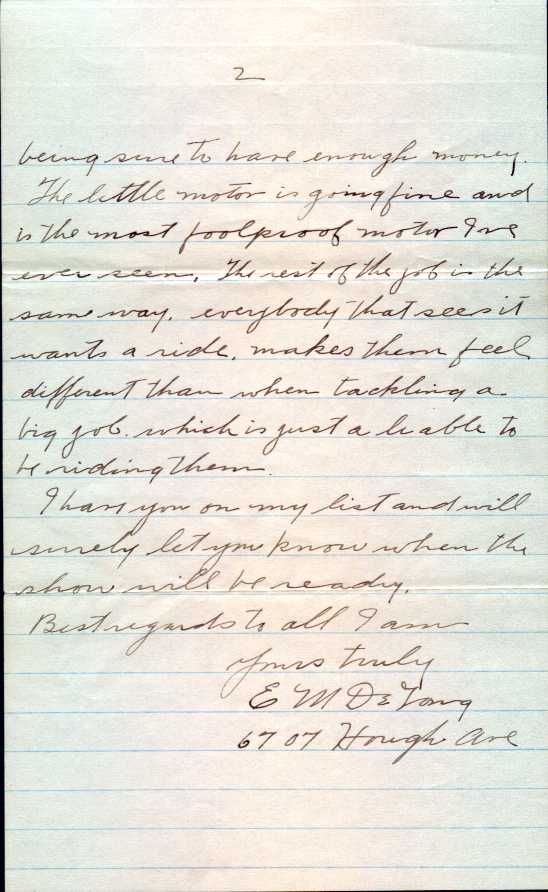 2
being sure to have enough money.
The little motor is going fine and
is the most foolproof motor I've
ever seen. The rest of the job is the
same way. everybody that sees it
wants a ride. makes them feel
different than when tackling a
big job. which is just a liable to
be riding them.
I have you on my list and will
surely let you know when the
show will be ready.
Best regards to all I am
Yours truly
E M De Long
6707 Hough Ave